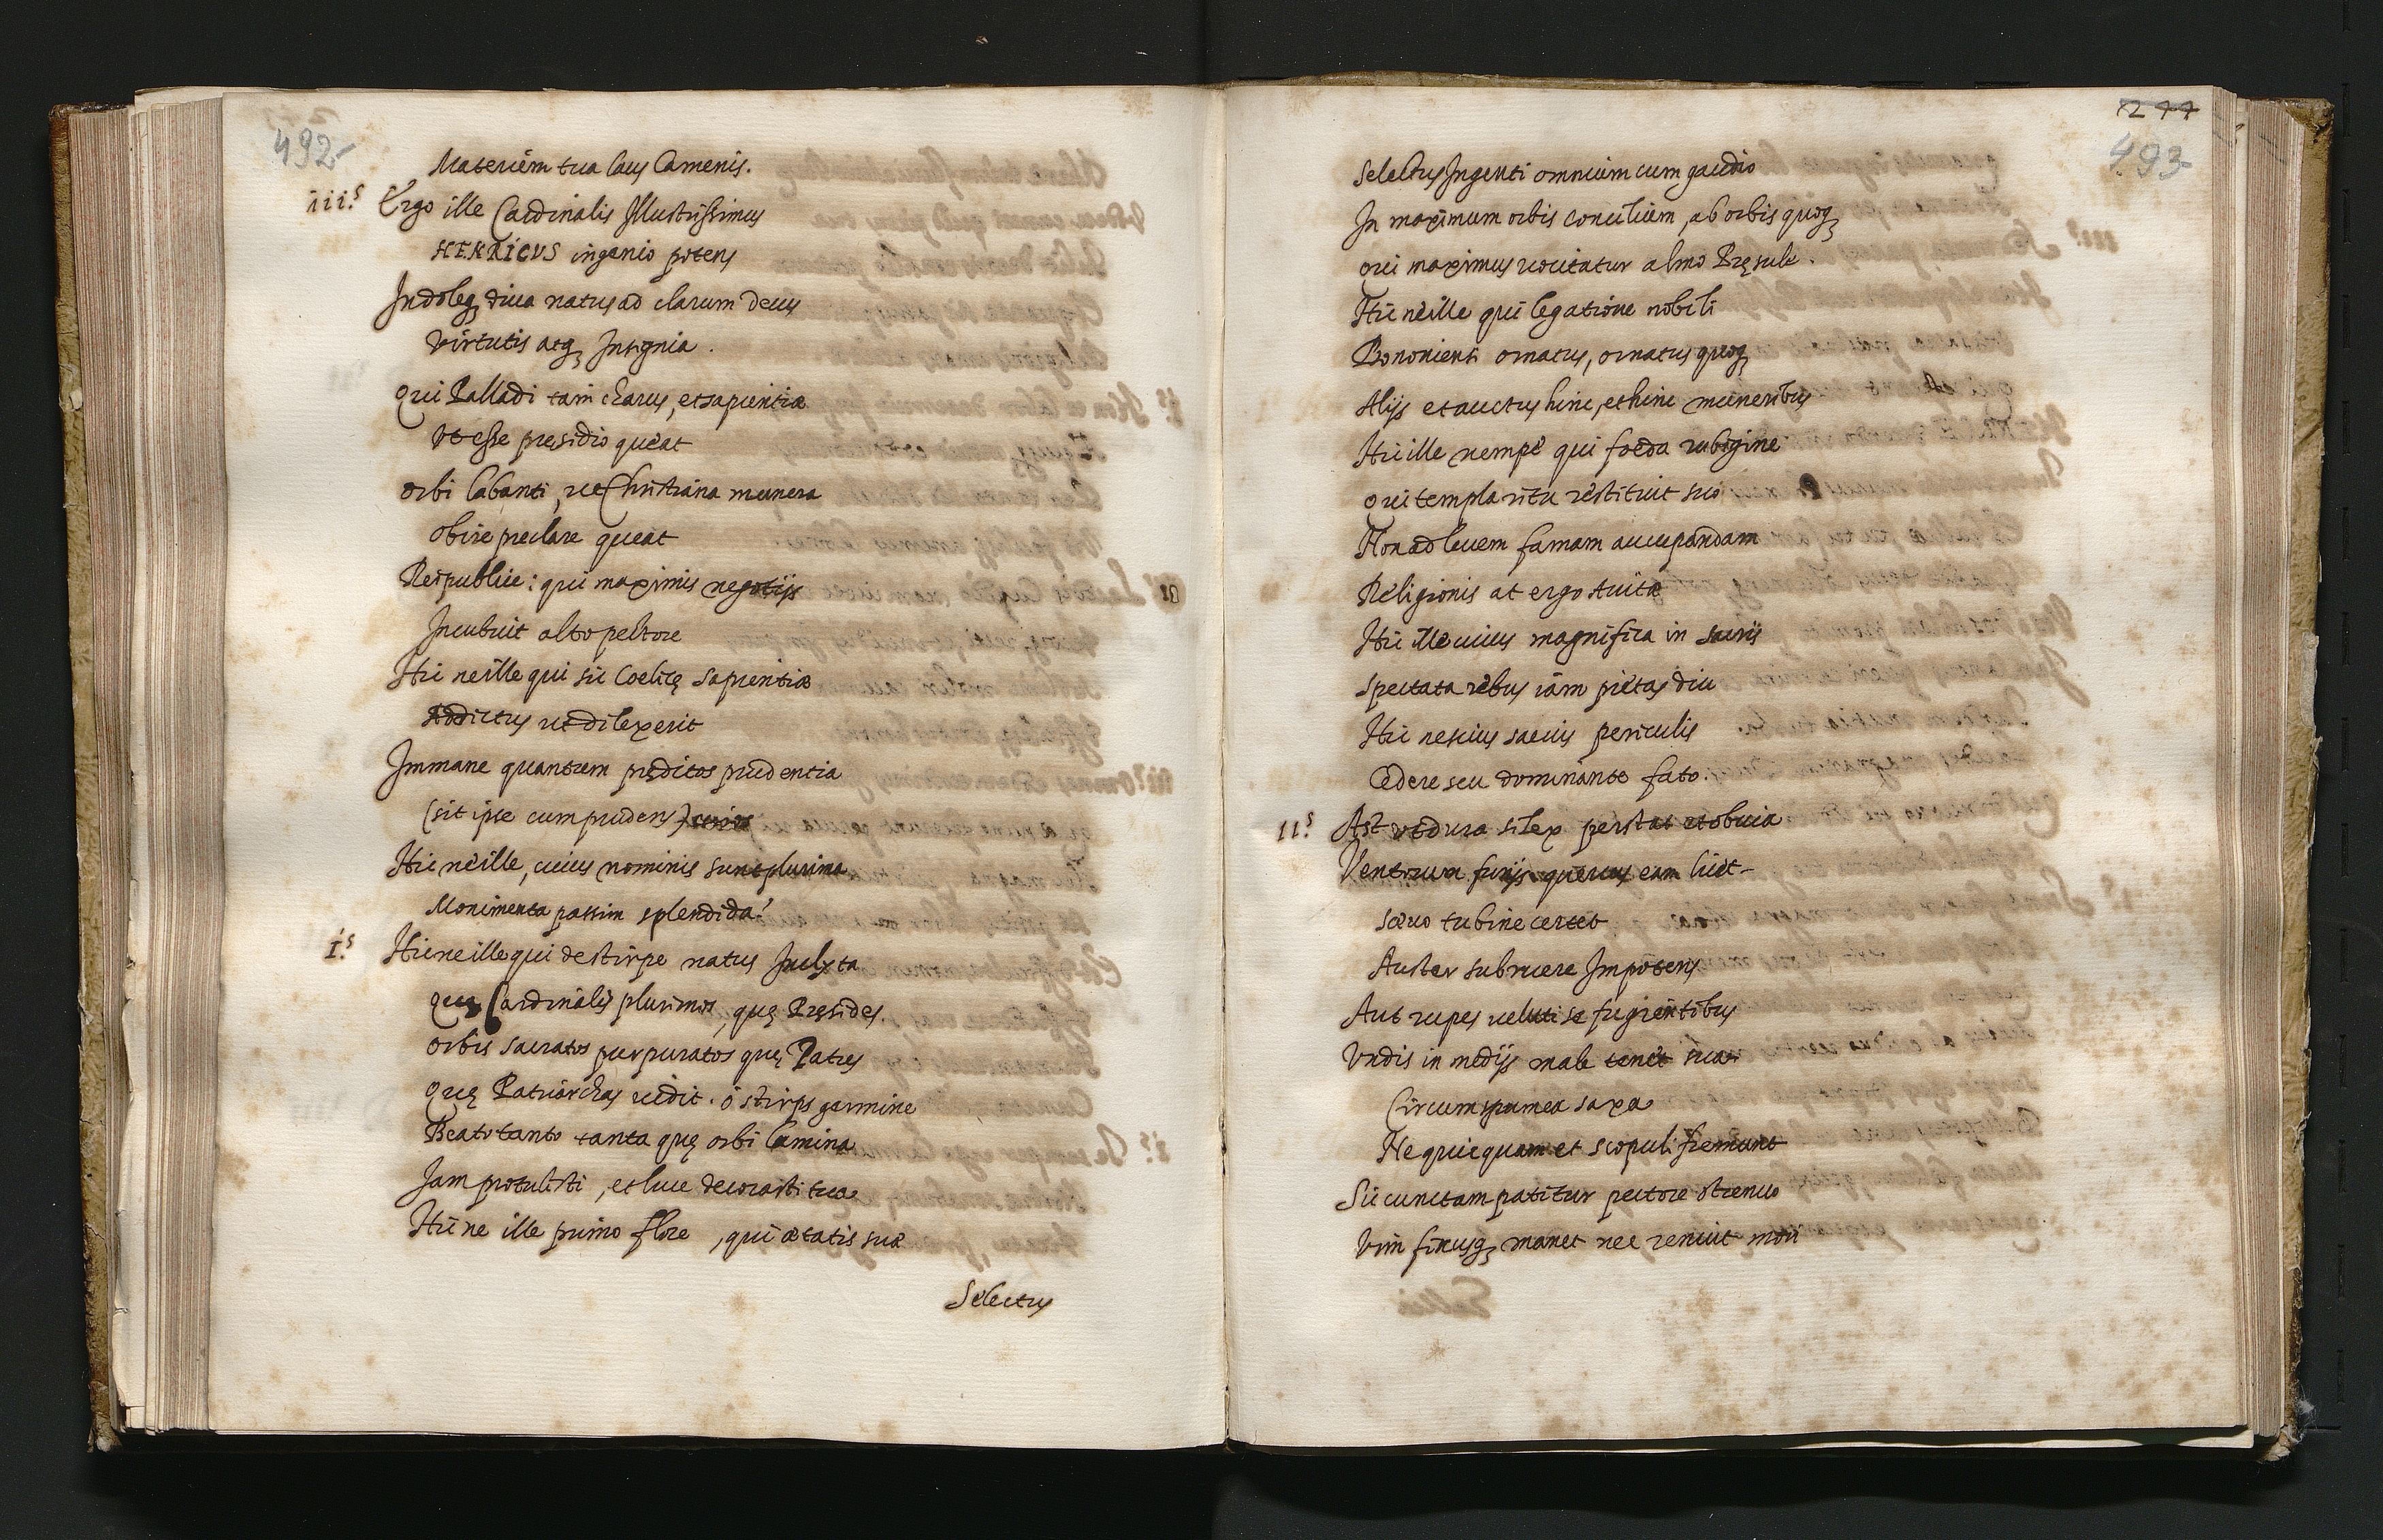 492
Materiém tua laus Camenis.
iii.s Ergo ille Cardinalis Illustrissimus
HENRICVS ingenio potens
Indoleq; diua natus ad clarum decus
Virtutis atq; Insignia.
Qui Palladi tam charus, et sapientiæ
Vt esse pręsidio queat
Orbi labanti, ut Christiana munera
Obire preclare queat
Reipublice: qui maximis negotijs
Incubuit alto pectore
Hic ne ille qui sic Coelicę sapientiæ
Addictus ut dilexerit
Immane quantum pręditos prudentia
(sit ipse cum prudens)
Hic ne ille, cuius nominis sunt plurima
Monimenta passim splendida?
I.s Hic ne ille qui de stirpe natus Inclyta
Quę Cardinalis plurimos, quę Pręsides.
Orbis sacratos purpuratos quę Patres
Quę Patriarchas uidit. ó stirps germine
Beato tanto tanta quę orbi lumina
Iam protulisti, et luce decorasti tua
Hic ne ille primo flore, qui ætatis suæ
Selectus
277
493
Selectus Ingenti omnium cum gaudio
In maximum orbis concilium, ab orbis quoq;
Qui maximus uocitatur almo Pręsule.
Hic ne ille qui legatione nobili
Bononiensi ornatus, ornatus quoq;
Alijs et auctus hinc, et hinc muneribus
Hic ille nempè qui foeda rubigine
Qui templa ritu restituit suo
Non ad leuem famam aucupandam
Religionis at ergo Auitæ
Hic ille cuius magnifica in sacris
Spectata rebus iàm pietas diu
Hic nescius saeuis periculis
Cedere seu dominante fato.
II.s Ast ut dura silex perstat et obuia
Ventorum furijs quercus eam licèt
Sæuo tubine certet
Auster subruere Impotens
Aut rupes ueluti se fugientibus
Vndis in medijs mole tenèt sua
Circum spumea saxa
Ne quicquam et scopuli fremunt
Sic cunctam patitur pectore strenuo
Vim fixusq; manet nec renuit mori